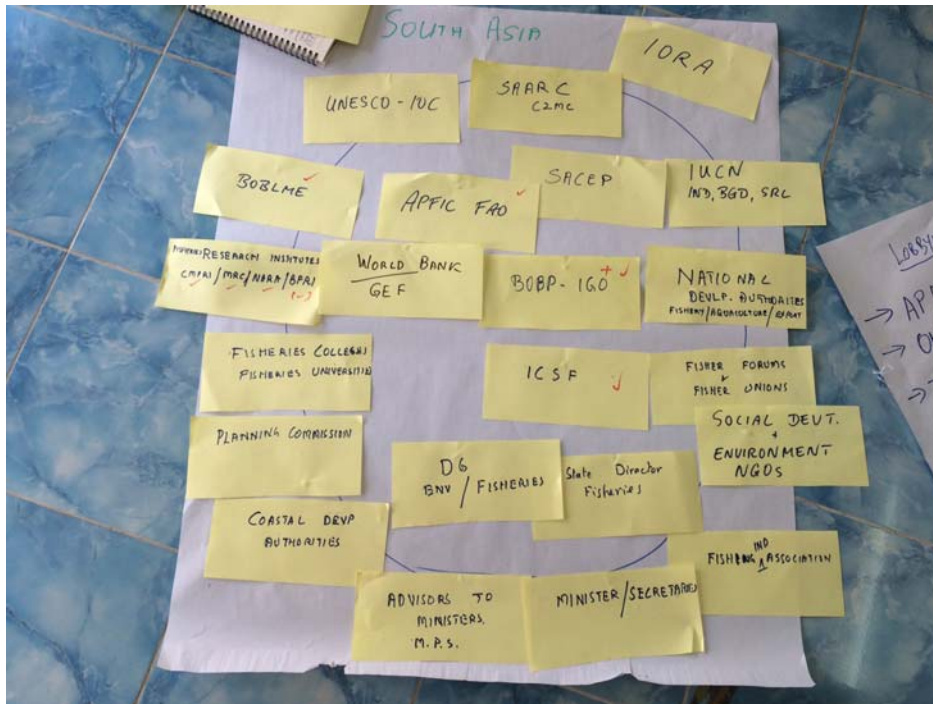 SOUTH ASIA
IORA
UNESCO - IOC
SAARC
CZMC
BOBLME
APFIC FAO
SACEP
IUCN
IND, BGD, SRL
RESEARCH INSTITUTES
CMFRI/MRC/NARA/BFRI
WORLD BANK
GEF
BOBP - IGO +
NATIONAL
DEVLP. AUTHORITES
FISHERY/AQUACULTURE/EXPORT
FISHERIES COLLEGES
FISHERIES UNIVERSITIES
ICSF
FISHER FORUMS
+
FISHER UNIONS
PLANNING COMMISSION
DG
ENV / FISHERIES
State Director
Fisheries
SOCIAL DEVT.
+
ENVIRONMENT
NGOS
COASTAL DEVP
AUTHORITIES
FISHING IND ASSOCIATION
ADVISORS TO
MINISTERS.
M.P.S.
MINISTER/SECRETARIES
→ AP
→
→